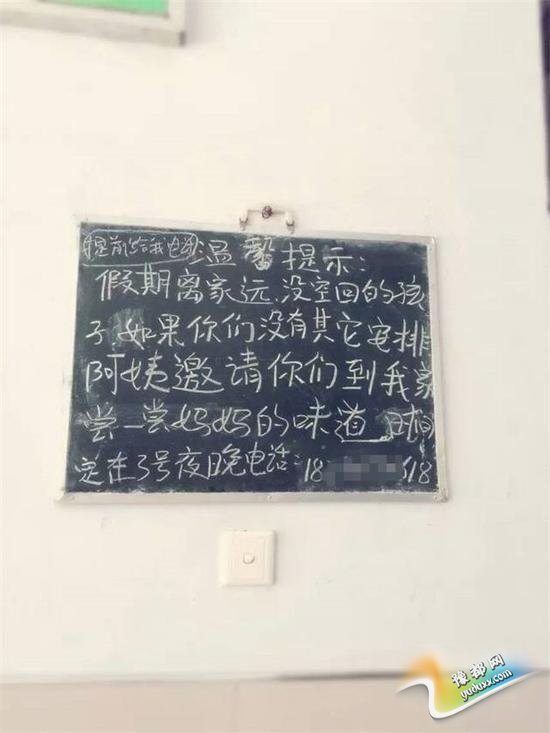 提前给我电话
温馨提示:
假期离家远,没空回的孩
子,如果你们没有其它安排
阿姨邀请你们到我家
尝一尝妈妈的味道 时间
定在3号夜晚电话:18 318
豫都网
yuduxx.com